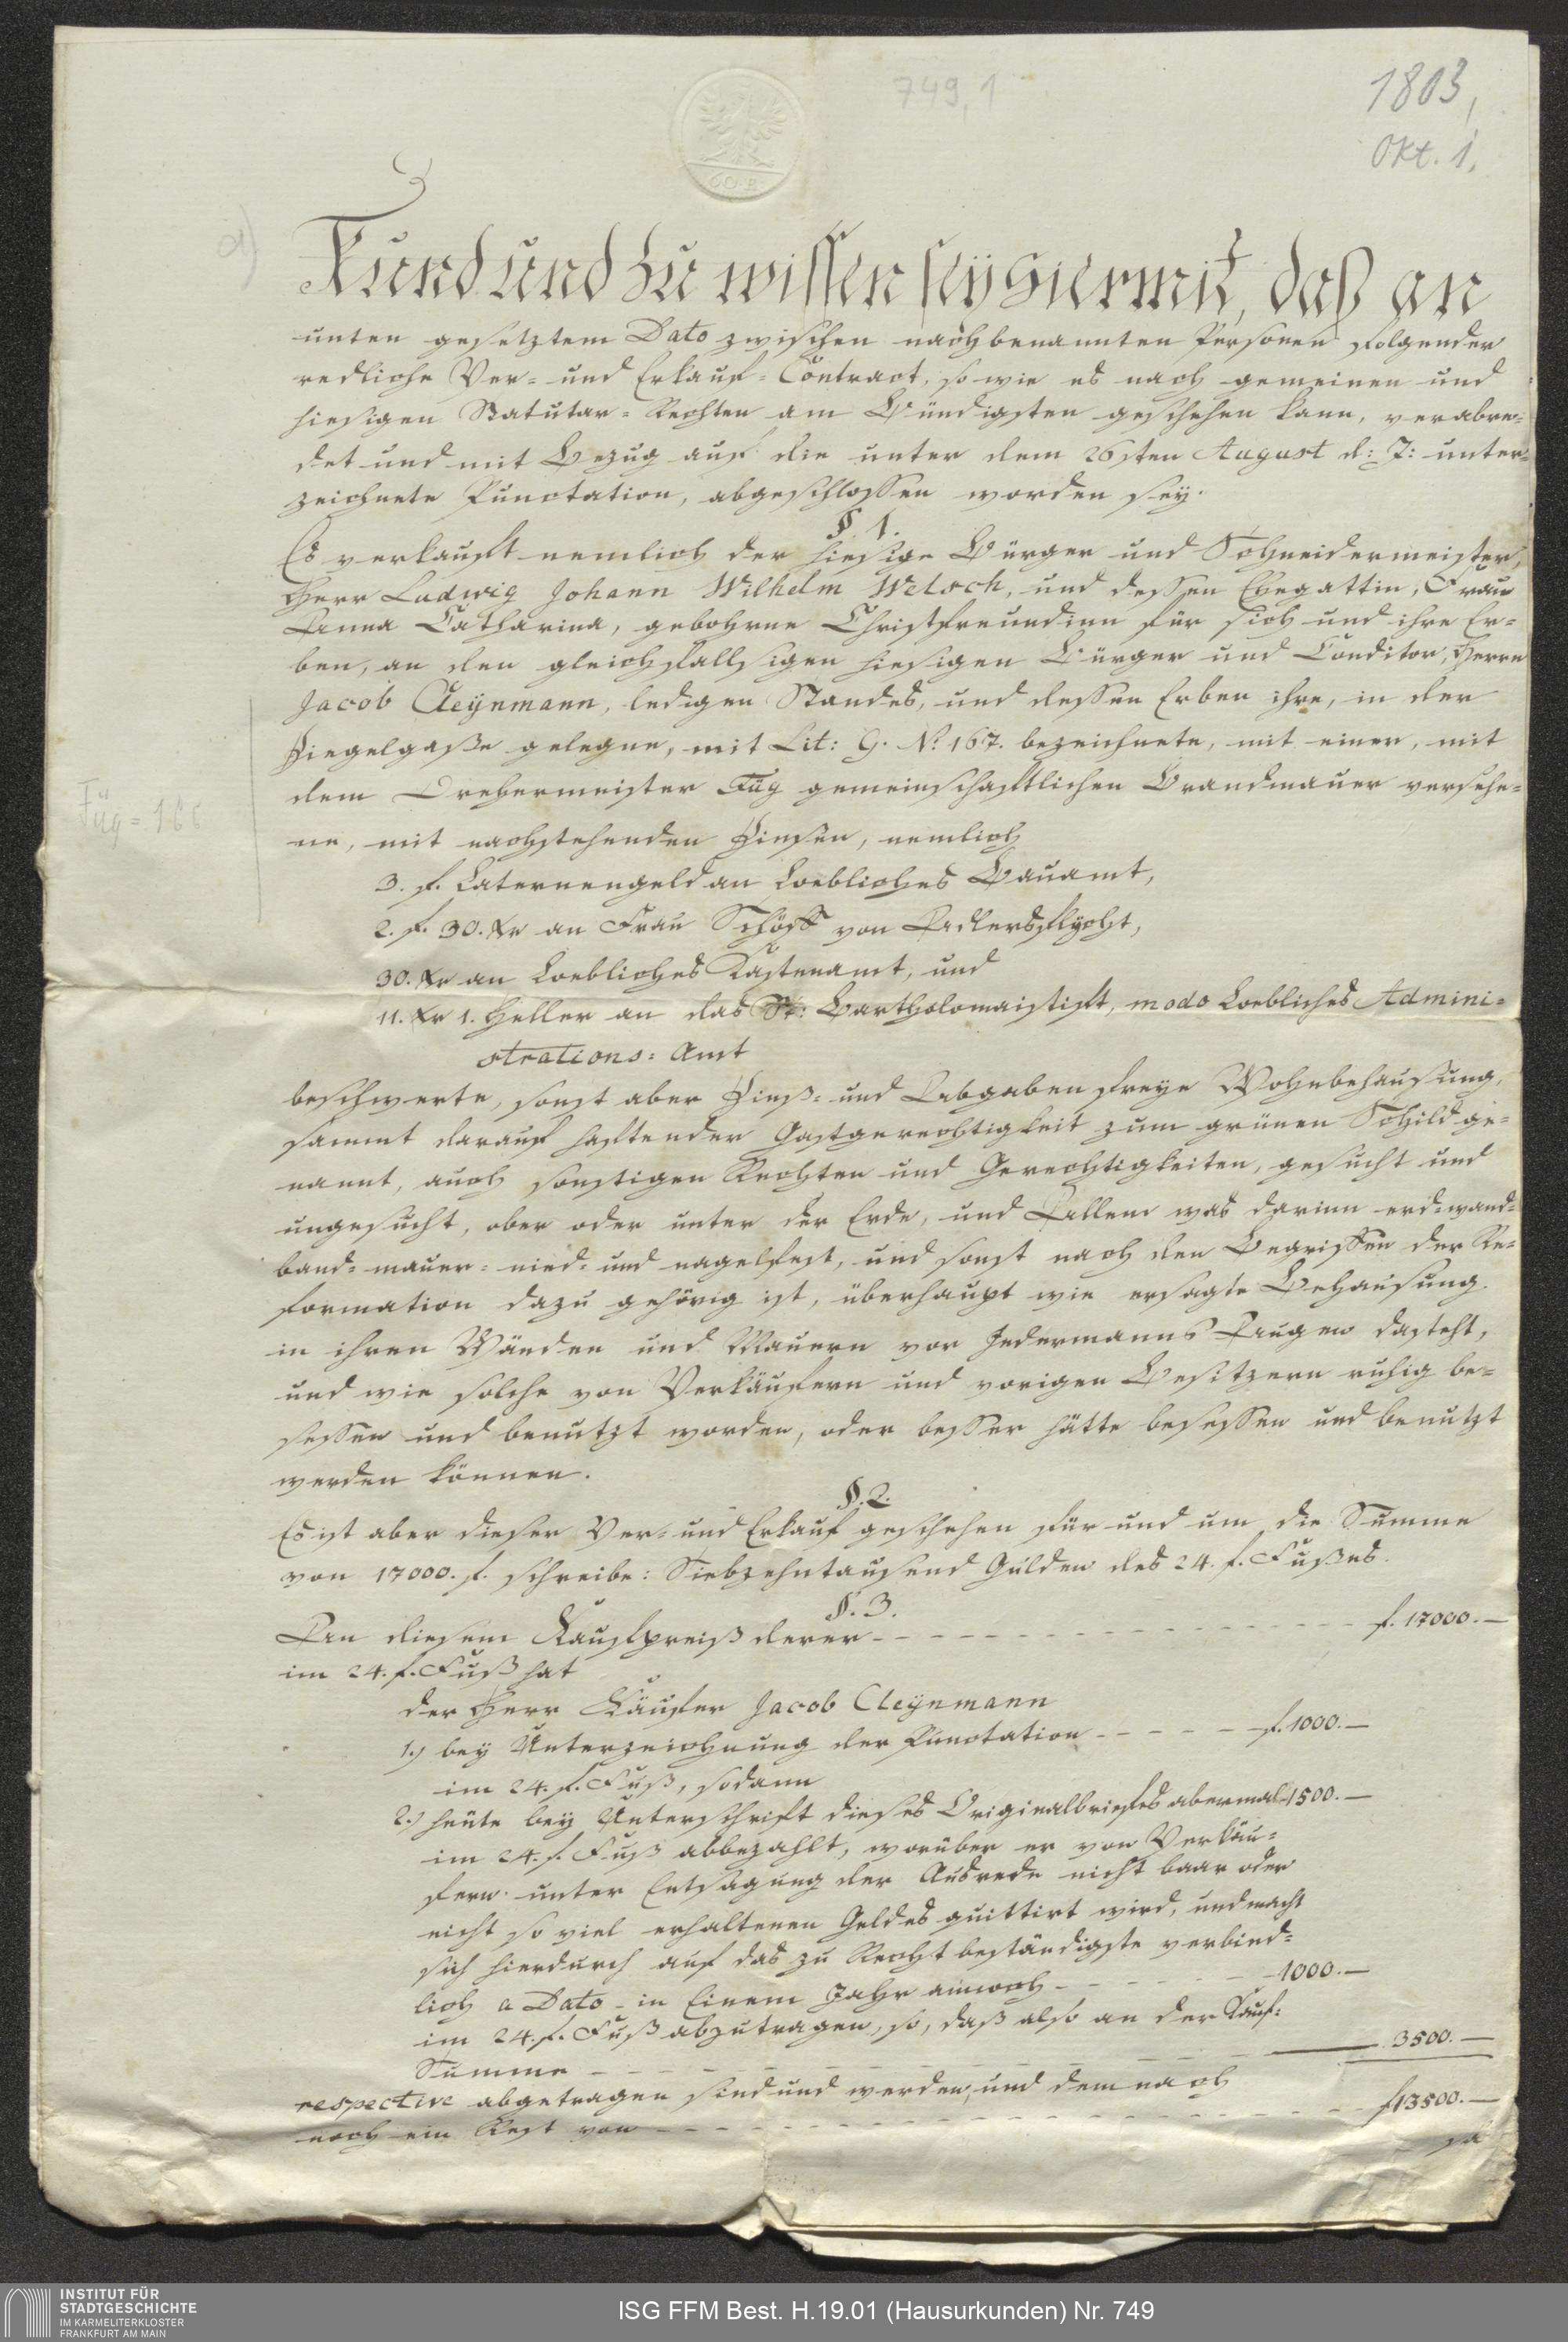 749,1
1803,
Okt. 1.
a)
Kund und zu wissen sey hiermit, daß an
unten gesetztem Dato zwischen nachbenannten Personen folgender
redliche Ver- und Erkauf-Contract, so wie es nach gemeinen und
hiesigen Statutar-Rechten am Bündigsten geschehen kann, verabre-
det und mit Bezug auf die unter dem 26sten August d: J: unter-
zeichnete Punctation, abgeschlossen worden sey.
§. 1.
Es verkauft nemlich der hiesige Bürger und Schneidermeister,
Herr Ludwig Johann Wilhelm Welsch, und dessen Ehegattin, Frau
Anna Catharina, gebohrne Christfreundinn für sich und ihre Er-
ben, an den gleichfallsigen hiesigen Bürger und Conditor, Herrn
Jacob Cleynmann, ledigen Standes, und dessen Erben ihre, in der
Ziegelgaße gelegne, mit Lit: G. No. 167. bezeichnete, mit einer, mit
dem Drehermeister Füg gemeinschaftlichen Brandmauer versehe-
Füg = 166
ne, mit nachstehenden Zinsen, nemlich
3. f. Laternengeld an Loebliches Bauamt,
2. f. 30. Xr an Frau Schöff von Adlersflycht,
30. Xr an Loebliches Kastenamt, und
11. Xr 1. Heller an das St: Bartholomaistift, modo Loebliches Admini-
strations-Amt
beschwerte, sonst aber Zinß- und Abgaben freye Wohnbehausung,
sammt darauf haftender Gastgerechtigkeit zum grünen Schild ge-
nannt, auch sonstigen Rechten und Gerechtigkeiten, gesucht und
ungesucht, ober oder unter der Erde, und Allem was darinn erd-wand-
band-mauer-nied- und nagelfest, und sonst nach den Begriffen der Re-
formation dazu gehörig ist, überhaupt wie ersagte Behausung
in ihren Wänden und Mauern vor Jedermanns Augen dasteht,
und wie solche von Verkäufern und vorigen Besitzern ruhig be-
sessen und benutzt worden, oder besser hätte besessen und benutzt
werden können.
§. 2.
Es ist aber dieser Ver- und Erkauf geschehen für und um die Summe
von 17000. f. schreibe: Siebzehntausend Gulden des 24. f. Fußes.
§. 3.
An diesem Kaufpreiß derer f. 17000.—
im 24. f. Fuß hat
der Herr Käufer Jacob Cleynmann
1.) bey Unterzeichnung der Punctation f. 1000.—
im 24. f. Fuß, sodann
2.) heute bey Unterschrift dieses Originalbriefes abermal 1500.—
im 24. f. Fuß abbezahlt, worüber er von Verkäu-
fern unter Entsagung der Ausrede nicht baar oder
nicht so viel erhaltenen Geldes quittirt wird, und macht
sich hierdurch auf das zu Recht beständigste verbind-
lich a Dato in Einem Jahr annoch 1000.—
im 24. f. Fuß abzutragen, so, daß also an der Kauf-
Summe 3500.—
respective abgetragen sind und werden, und demnach
noch ein Rest von f 13500.—
INSTITUT FÜR
STADTGESCHICHTE
IM KARMELITERKLOSTER
FRANKFURT AM MAIN
ISG FFM Best. H.19.01 (Hausurkunden) Nr. 749